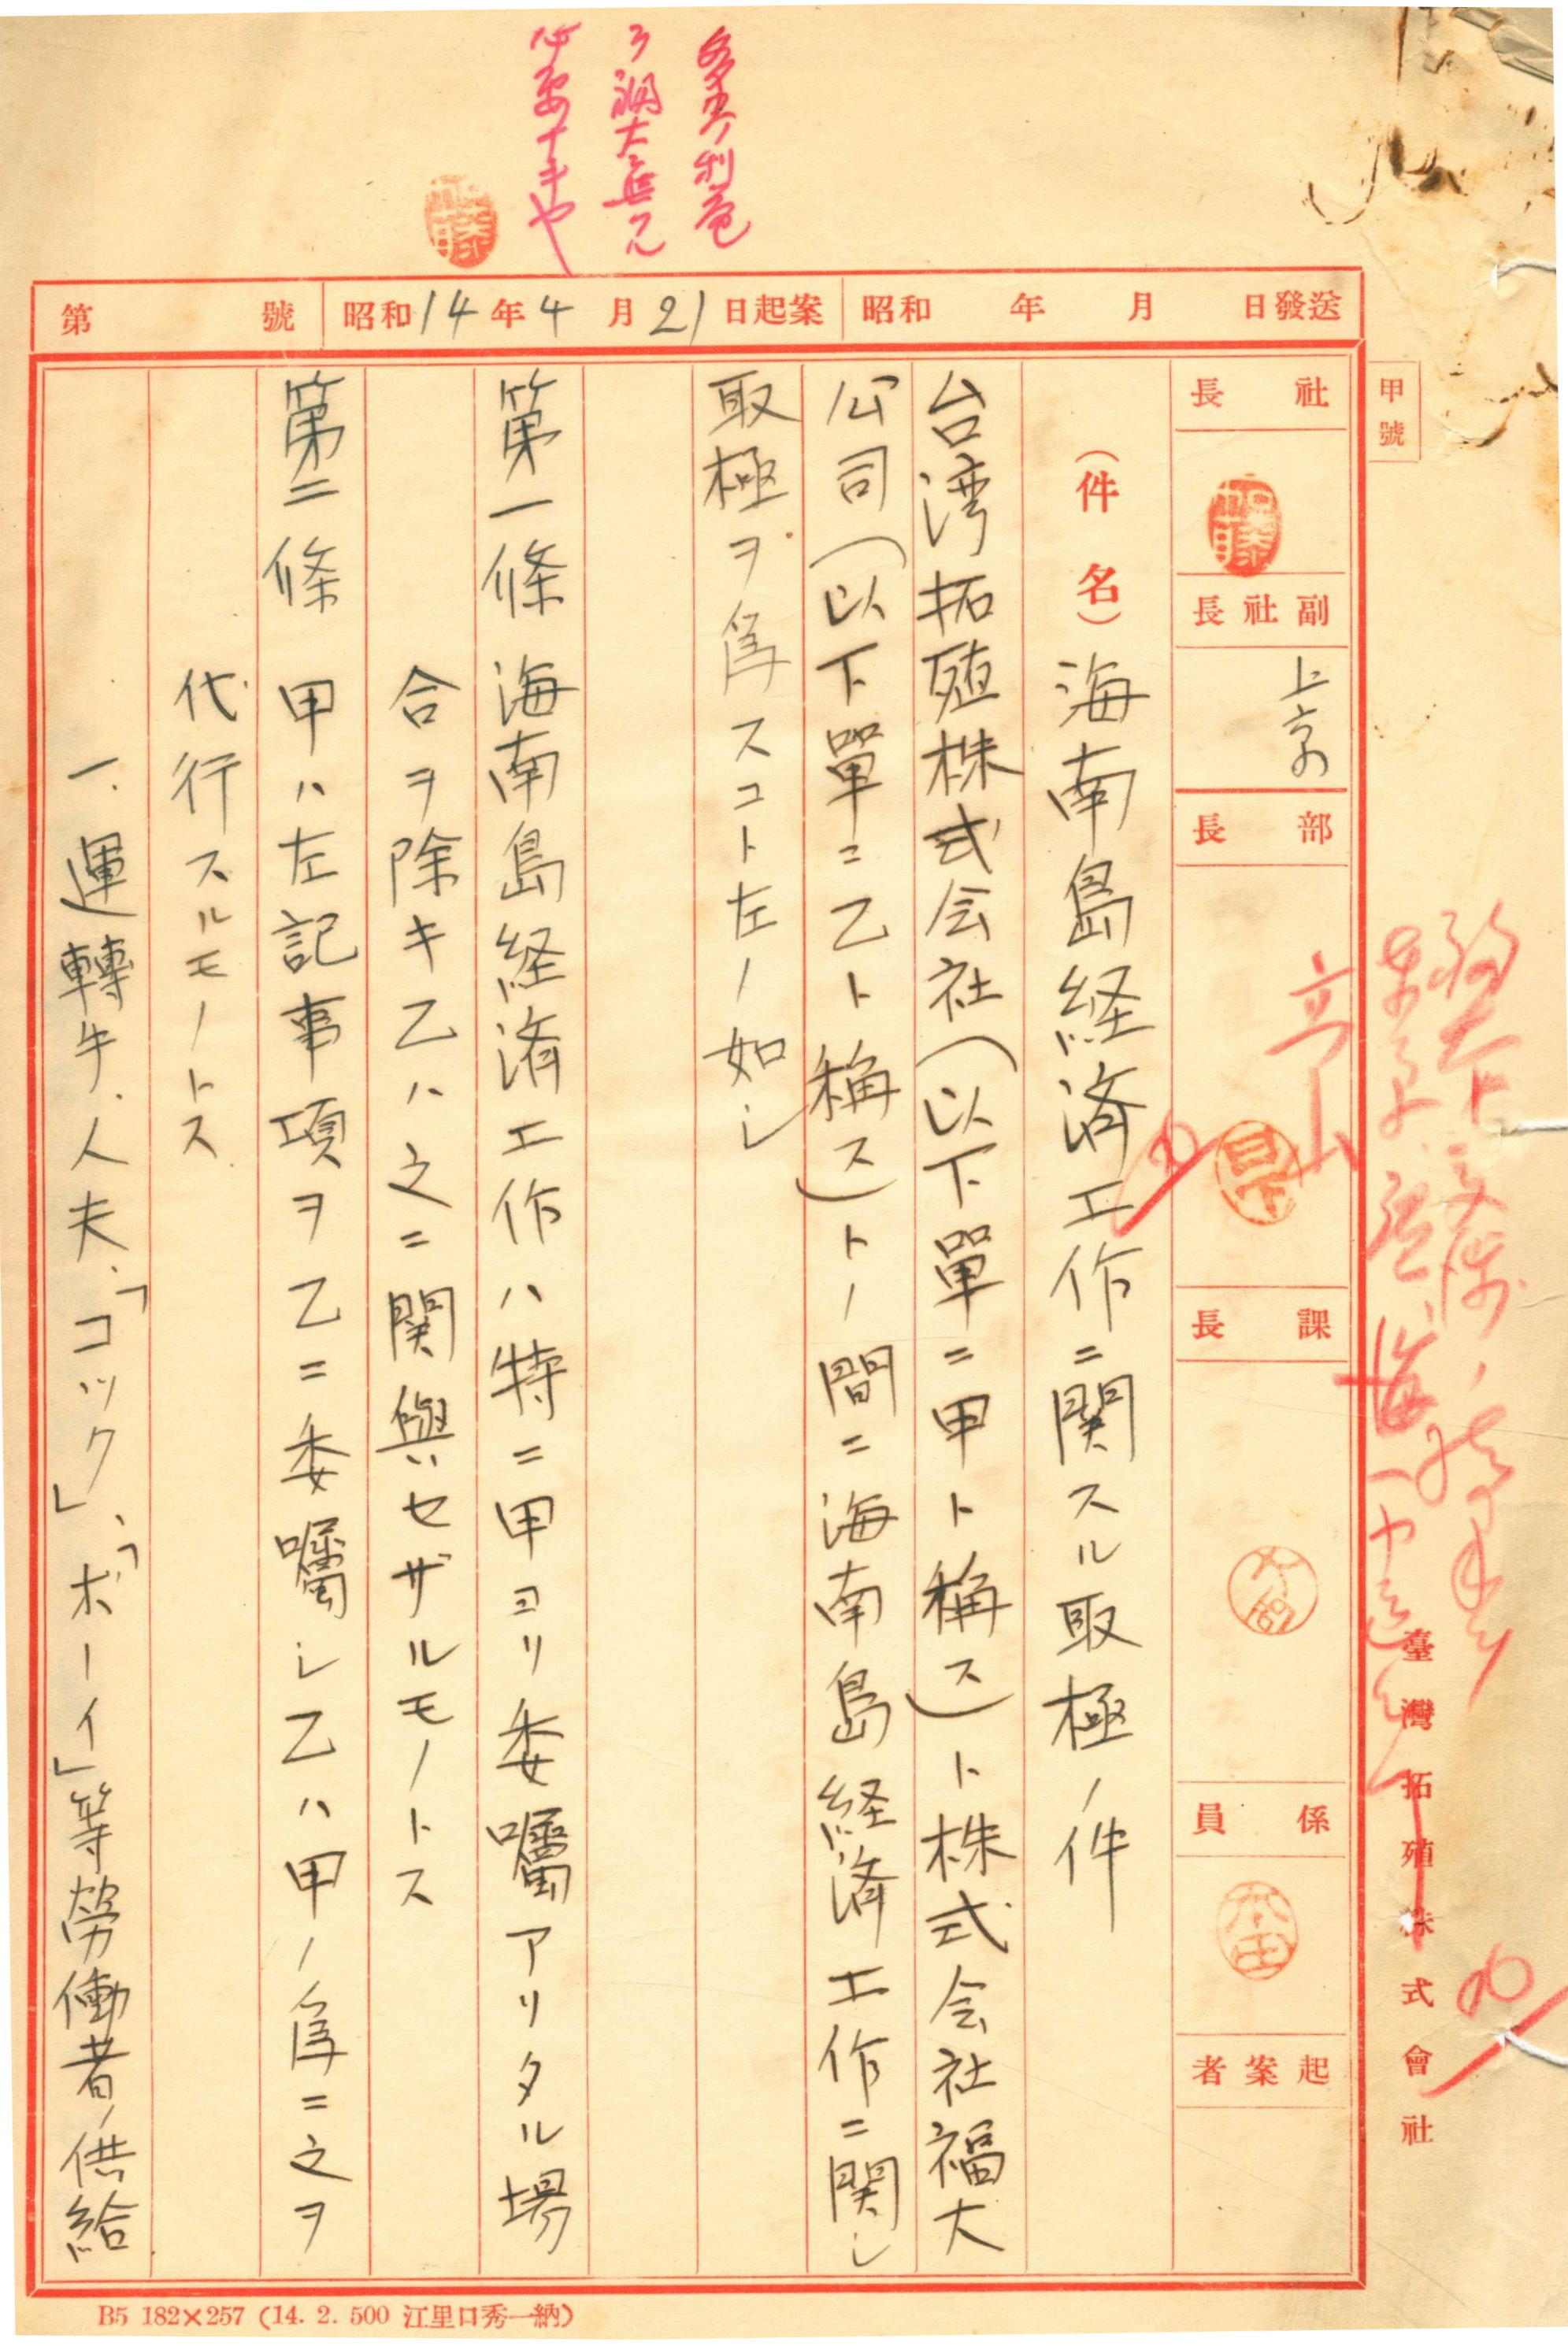 甲號
臺灣拓殖株式會社
第 號
昭和14年4月21日起案
昭和 年 月 日發送
社長
副社長
上京中
部長
課長
係員
起案者
(件名)海南島経済工作ニ関スル取極ノ件
台湾拓殖株式会社(以下單ニ甲ト稱ス)ト株式会社福大
公司(以下單ニ乙ト稱ス)トノ間ニ海南島経済工作ニ関シ
取極ヲ為スコト左ノ如シ
第一條 海南島経済工作ハ特ニ甲ヨリ委囑アリタル場
合ヲ除キ乙ハ之ニ関與セザルモノトス
第二條 甲ハ左記事項ヲ乙ニ委囑シ乙ハ甲ノ為ニ之ヲ
代行スルモノトス
一、運轉手、人夫、「コック」、「ボーイ」等労働者ノ供給
B5 182×257 (14. 2. 500 江里口秀一納)